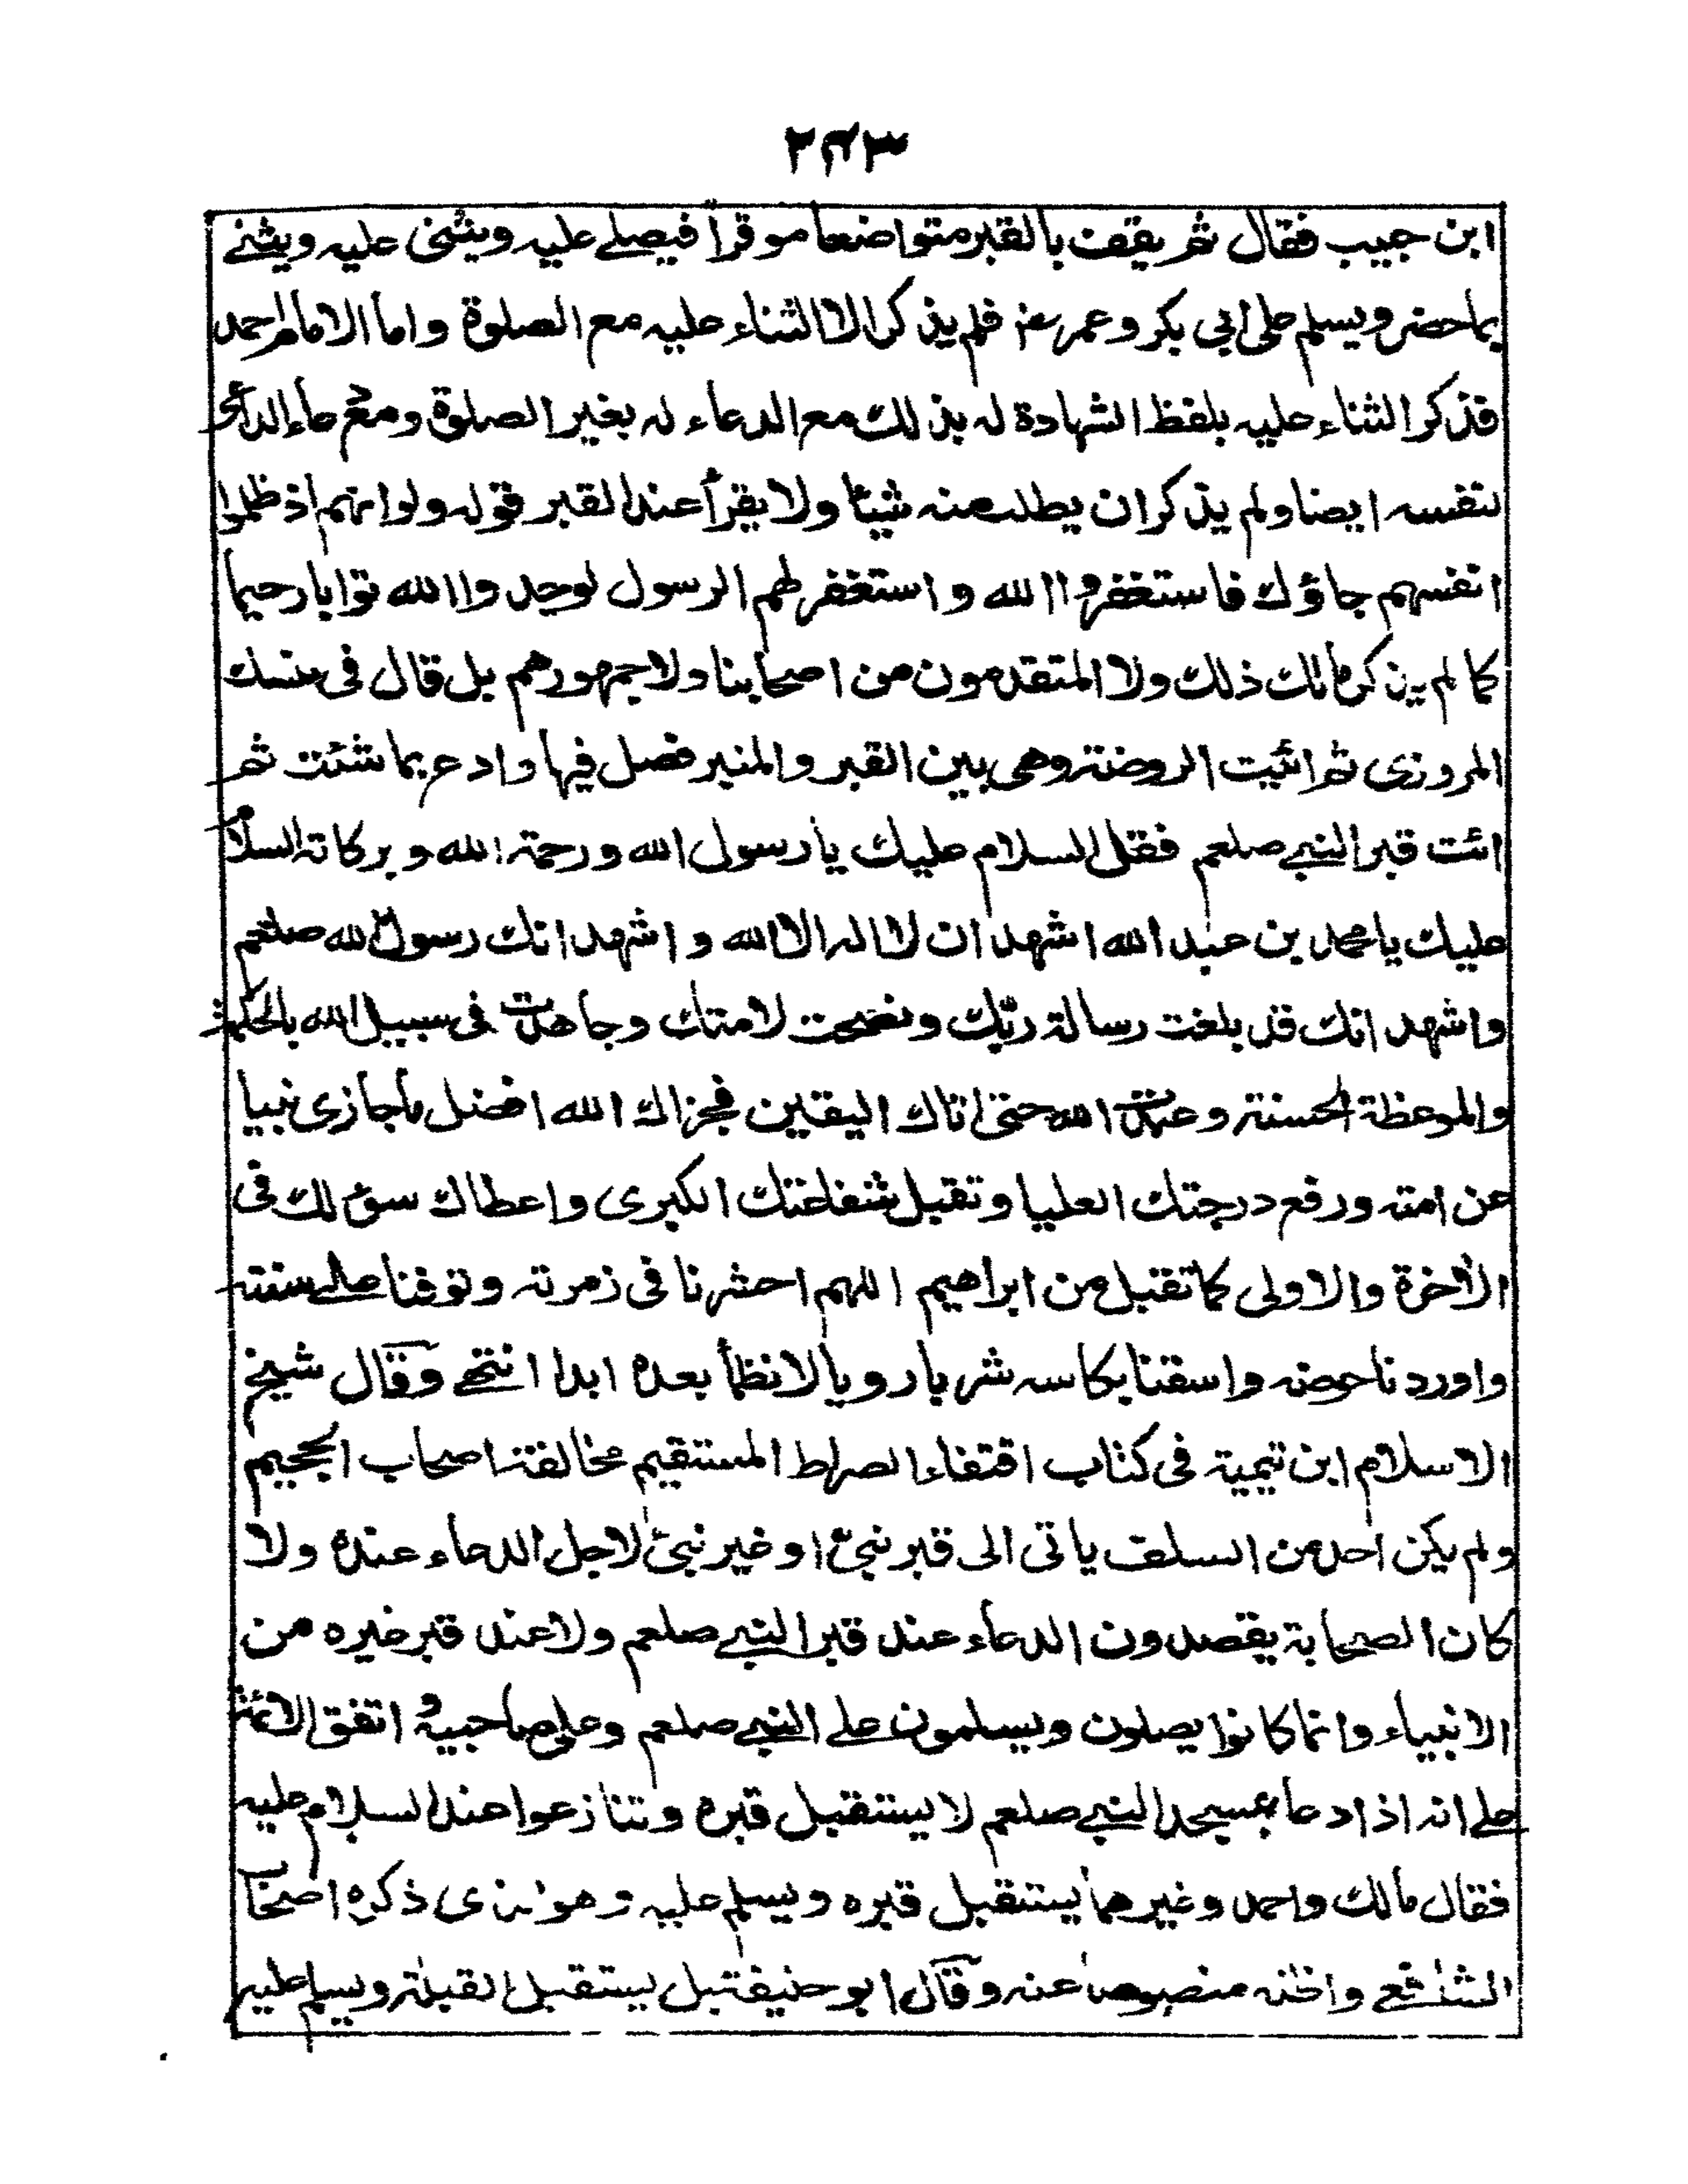 ٢٤٣
ابن حبيب فقال ثم يقف بالقبر متواضعا موقرا فيصلے عليه ويثنى عليه ويثنے
بما حضر ويسلم على ابى بكر وعمر رض فلم يذكر الا الثناء عليه مع الصلوة واما الامام احمد
فذكر الثناء عليه بلفظ الشهادة له بذلك مع الدعاء له بغير الصلوة ومع دعاء الداعى
لنفسه ايضا ولم يذكر ان يطلب منه شيئا ولا يقرأ عند القبر قوله ولو انهم اذ ظلموا
انفسهم جاؤك فاستغفروا الله واستغفر لهم الرسول لوجدوا الله توابا رحيما
كما لم يذكر مالك ذلك ولا المتقدمون من اصحابنا ولا جمهورهم بل قال فى منسك
المروزى ثم ائت الروضة وهى بين القبر والمنبر فصل فيها وادع بما شئت ثم
ائت قبر النبے صلعم فقل السلام عليك يا رسول الله ورحمة الله وبركاته السلام
عليك يا محمد بن عبد الله اشهد ان لا اله الا الله واشهد انك رسول الله صلعم
واشهد انك قد بلغت رسالة ربّك ونصحت لامتك وجاهدت فى سبيل الله بالحكمة
والموعظة الحسنة وعبدت الله حتى اتاك اليقين فجزاك الله افضل ما جازى نبيا
عن امته ورفع درجتك العليا وتقبل شفاعتك الكبرى واعطاك سؤلك فى
الآخرة والاولى كما تقبل من ابراهيم اللهم احشرنا فى زمرته وتوفنا علے سنته
واوردنا حوضه واسقنا بكاسه شربا رويا لا نظمأ بعده ابدا انتهے وقال شيخ
الاسلام ابن تيمية فى كتاب اقتفاء الصراط المستقيم مخالفة اصحاب الجحيم
ولم يكن احد من السلف ياتى الى قبر نبىّ او غير نبىّ لاجل الدعاء عنده ولا
كان الصحابة يقصدون الدعاء عند قبر النبے صلعم ولا عند قبر غيره من
الانبياء وانما كانوا يصلون ويسلمون علے النبے صلعم وعلى صاحبيه و اتفق الائمة
علے انه اذا دعا بمسجد النبے صلعم لا يستقبل قبره وتنازعوا عند السلام عليه
فقال مالك واحمد وغيرهما يستقبل قبره ويسلم عليه وهو الذى ذكره اصحاب
الشافعے واظنه منصوصا عنه وقال ابو حنيفة بل يستقبل القبلة ويسلم عليه